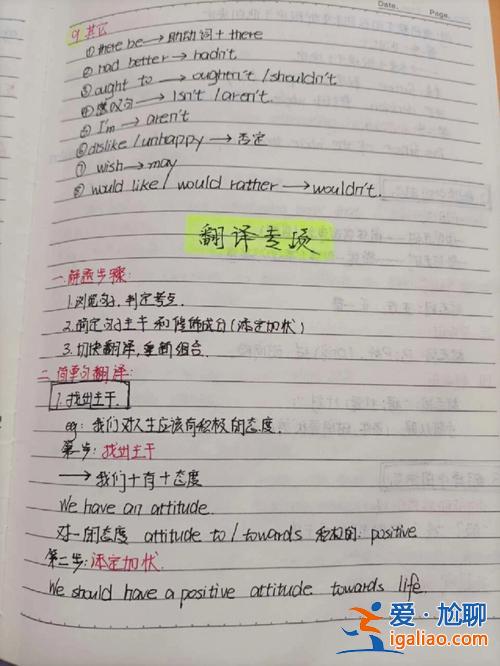 Date. Page.
9) 其它
① there be → 助动词 + there
② had better → hadn't
③ ought to → oughtn't / shouldn't
④ 感叹句 → Isn't / aren't.
⑤ I'm → aren't
⑥ dislike / unhappy → 否定
⑦ wish → may
⑧ would like / would rather → wouldn't.
翻译专项
一. 解题步骤:
1. 浏览句子, 判定考点.
2. 确定句子主干和修饰成分 (添定加状)
3. 切块翻译, 重新组合.
二. 简单句翻译:
1. 找出主干.
eg: 我们对人生应该有积极的态度.
第一步: 找出主干
→ 我们 + 有 + 态度
We have an attitude.
对…的态度 attitude to / towards 积极的: positive
第二步: 添定加状.
We should have a positive attitude towards life.
爱·尬聊
igaliao.com